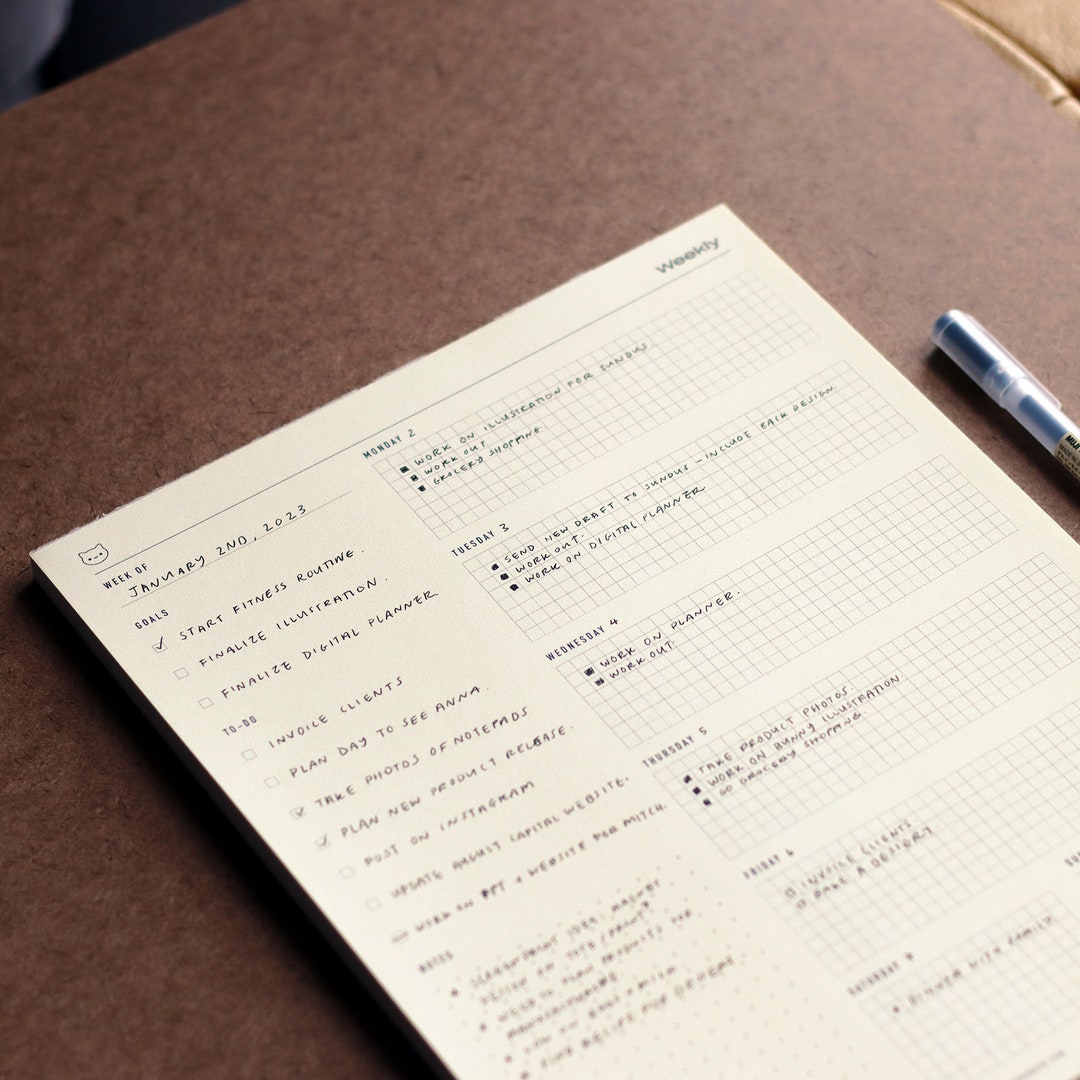 Weekly
WEEK OF
JANUARY 2ND, 2023
GOALS
START FITNESS ROUTINE.
FINALIZE ILLUSTRATION.
FINALIZE DIGITAL PLANNER
TO-DO
INVOICE CLIENTS
PLAN DAY TO SEE ANNA.
TAKE PHOTOS OF NOTEPADS
PLAN NEW PRODUCT RELEASE.
POST ON INSTAGRAM
UPDATE AUGUST CAPITAL WEBSITE.
WORK ON PPT + WEBSITE FOR MITCH.
NOTES
DESIGN ON TOTE / PRINT?
FIND RECIPE FOR DESSERT
MONDAY 2
WORK ON ILLUSTRATION FOR SUNDUS
WORK OUT
GROCERY SHOPPING
TUESDAY 3
SEND NEW DRAFT TO SUNDUS - INCLUDE BACK DESIGN.
WORK OUT.
WORK ON DIGITAL PLANNER
WEDNESDAY 4
WORK ON PLANNER.
WORK OUT.
THURSDAY 5
TAKE PRODUCT PHOTOS
WORK ON BUNNY ILLUSTRATION
GO GROCERY SHOPPING
FRIDAY 6
INVOICE CLIENTS
BAKE A DESSERT
SATURDAY
DINNER WITH FAMILY